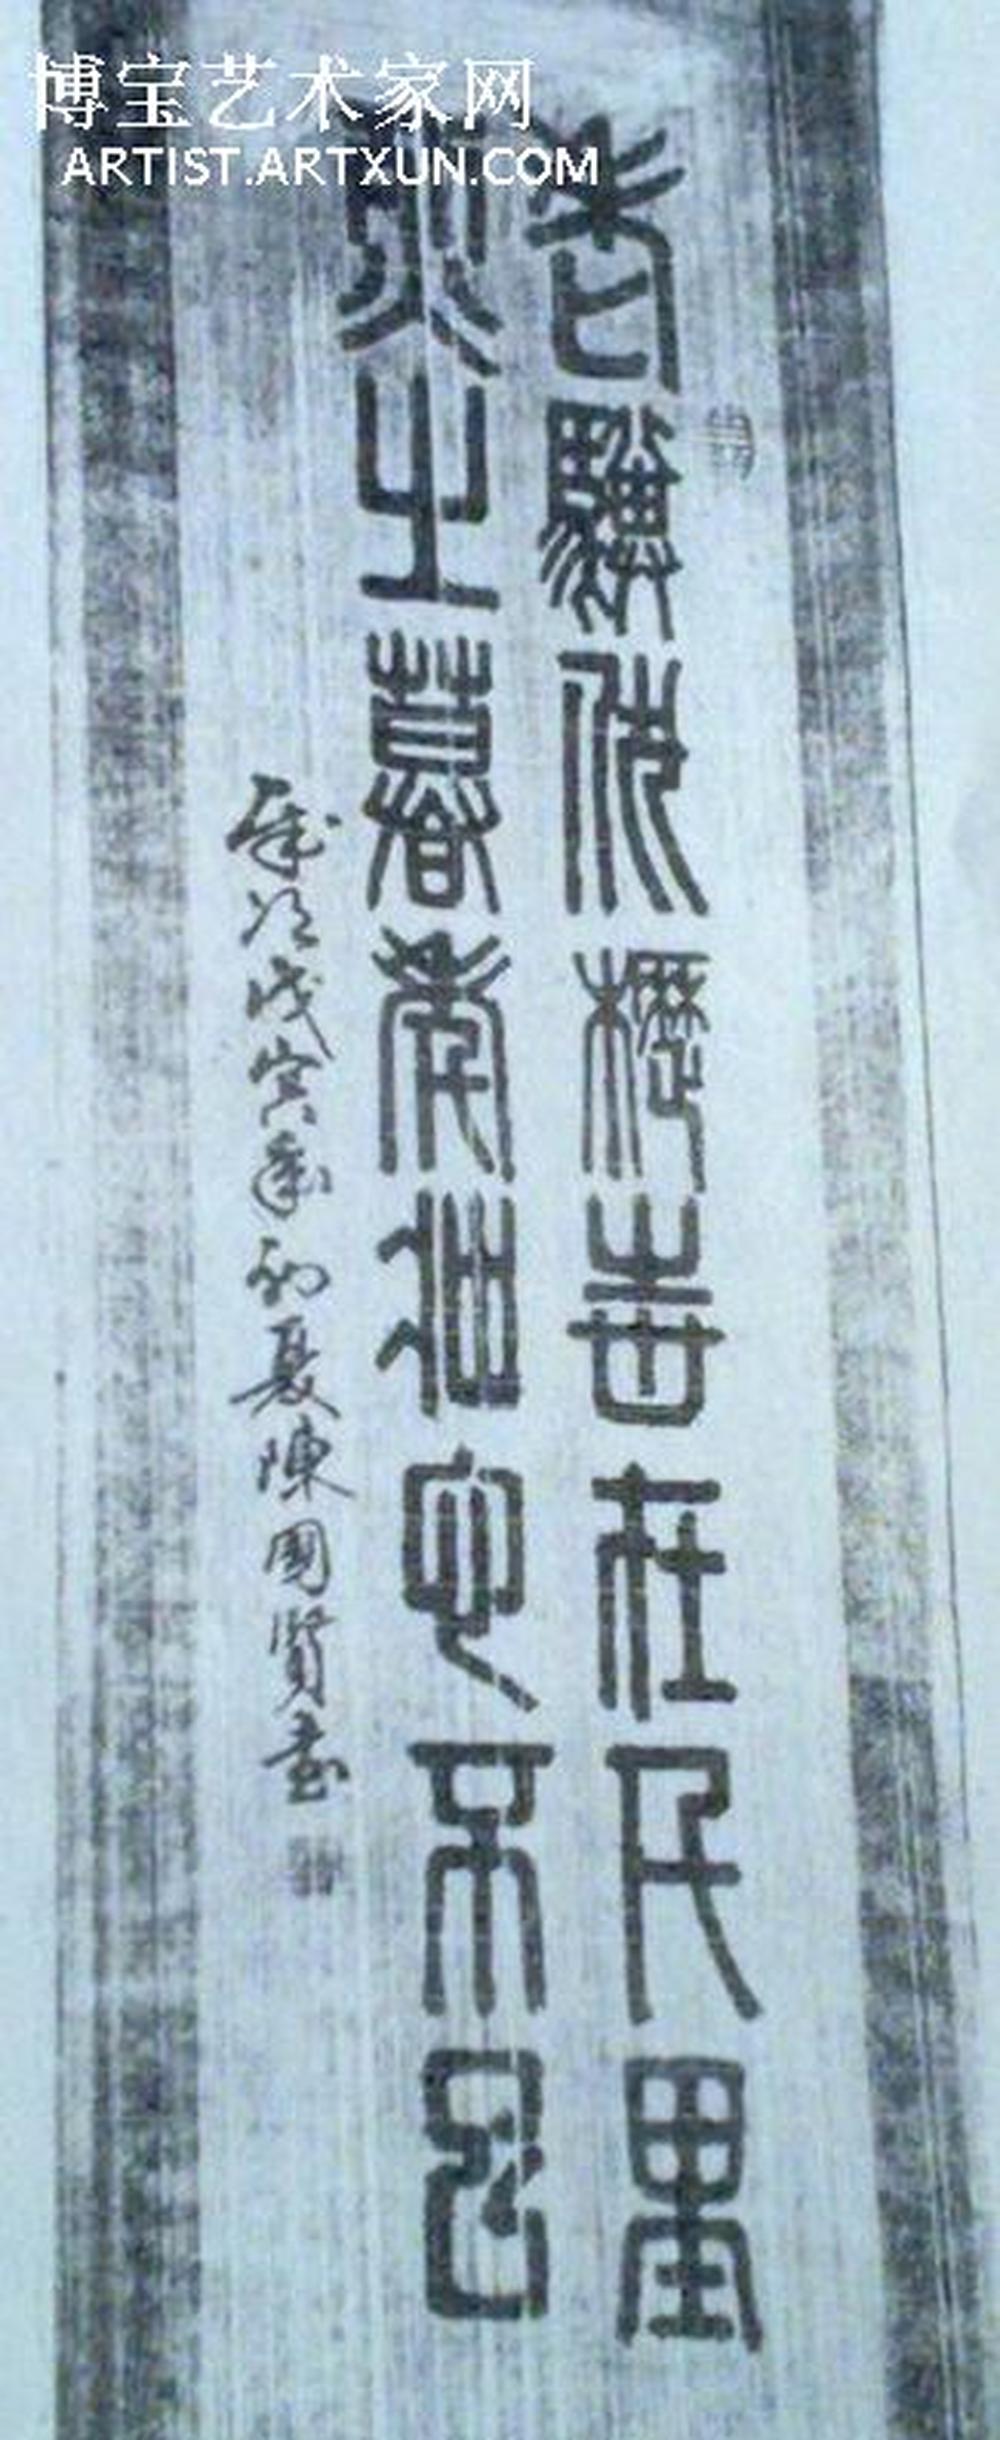 博宝艺术家网
ARTIST.ARTXUN.COM
老驥伏櫪志在千里
烈士暮年壯心不已
歲次戊寅年初夏陳國賢書